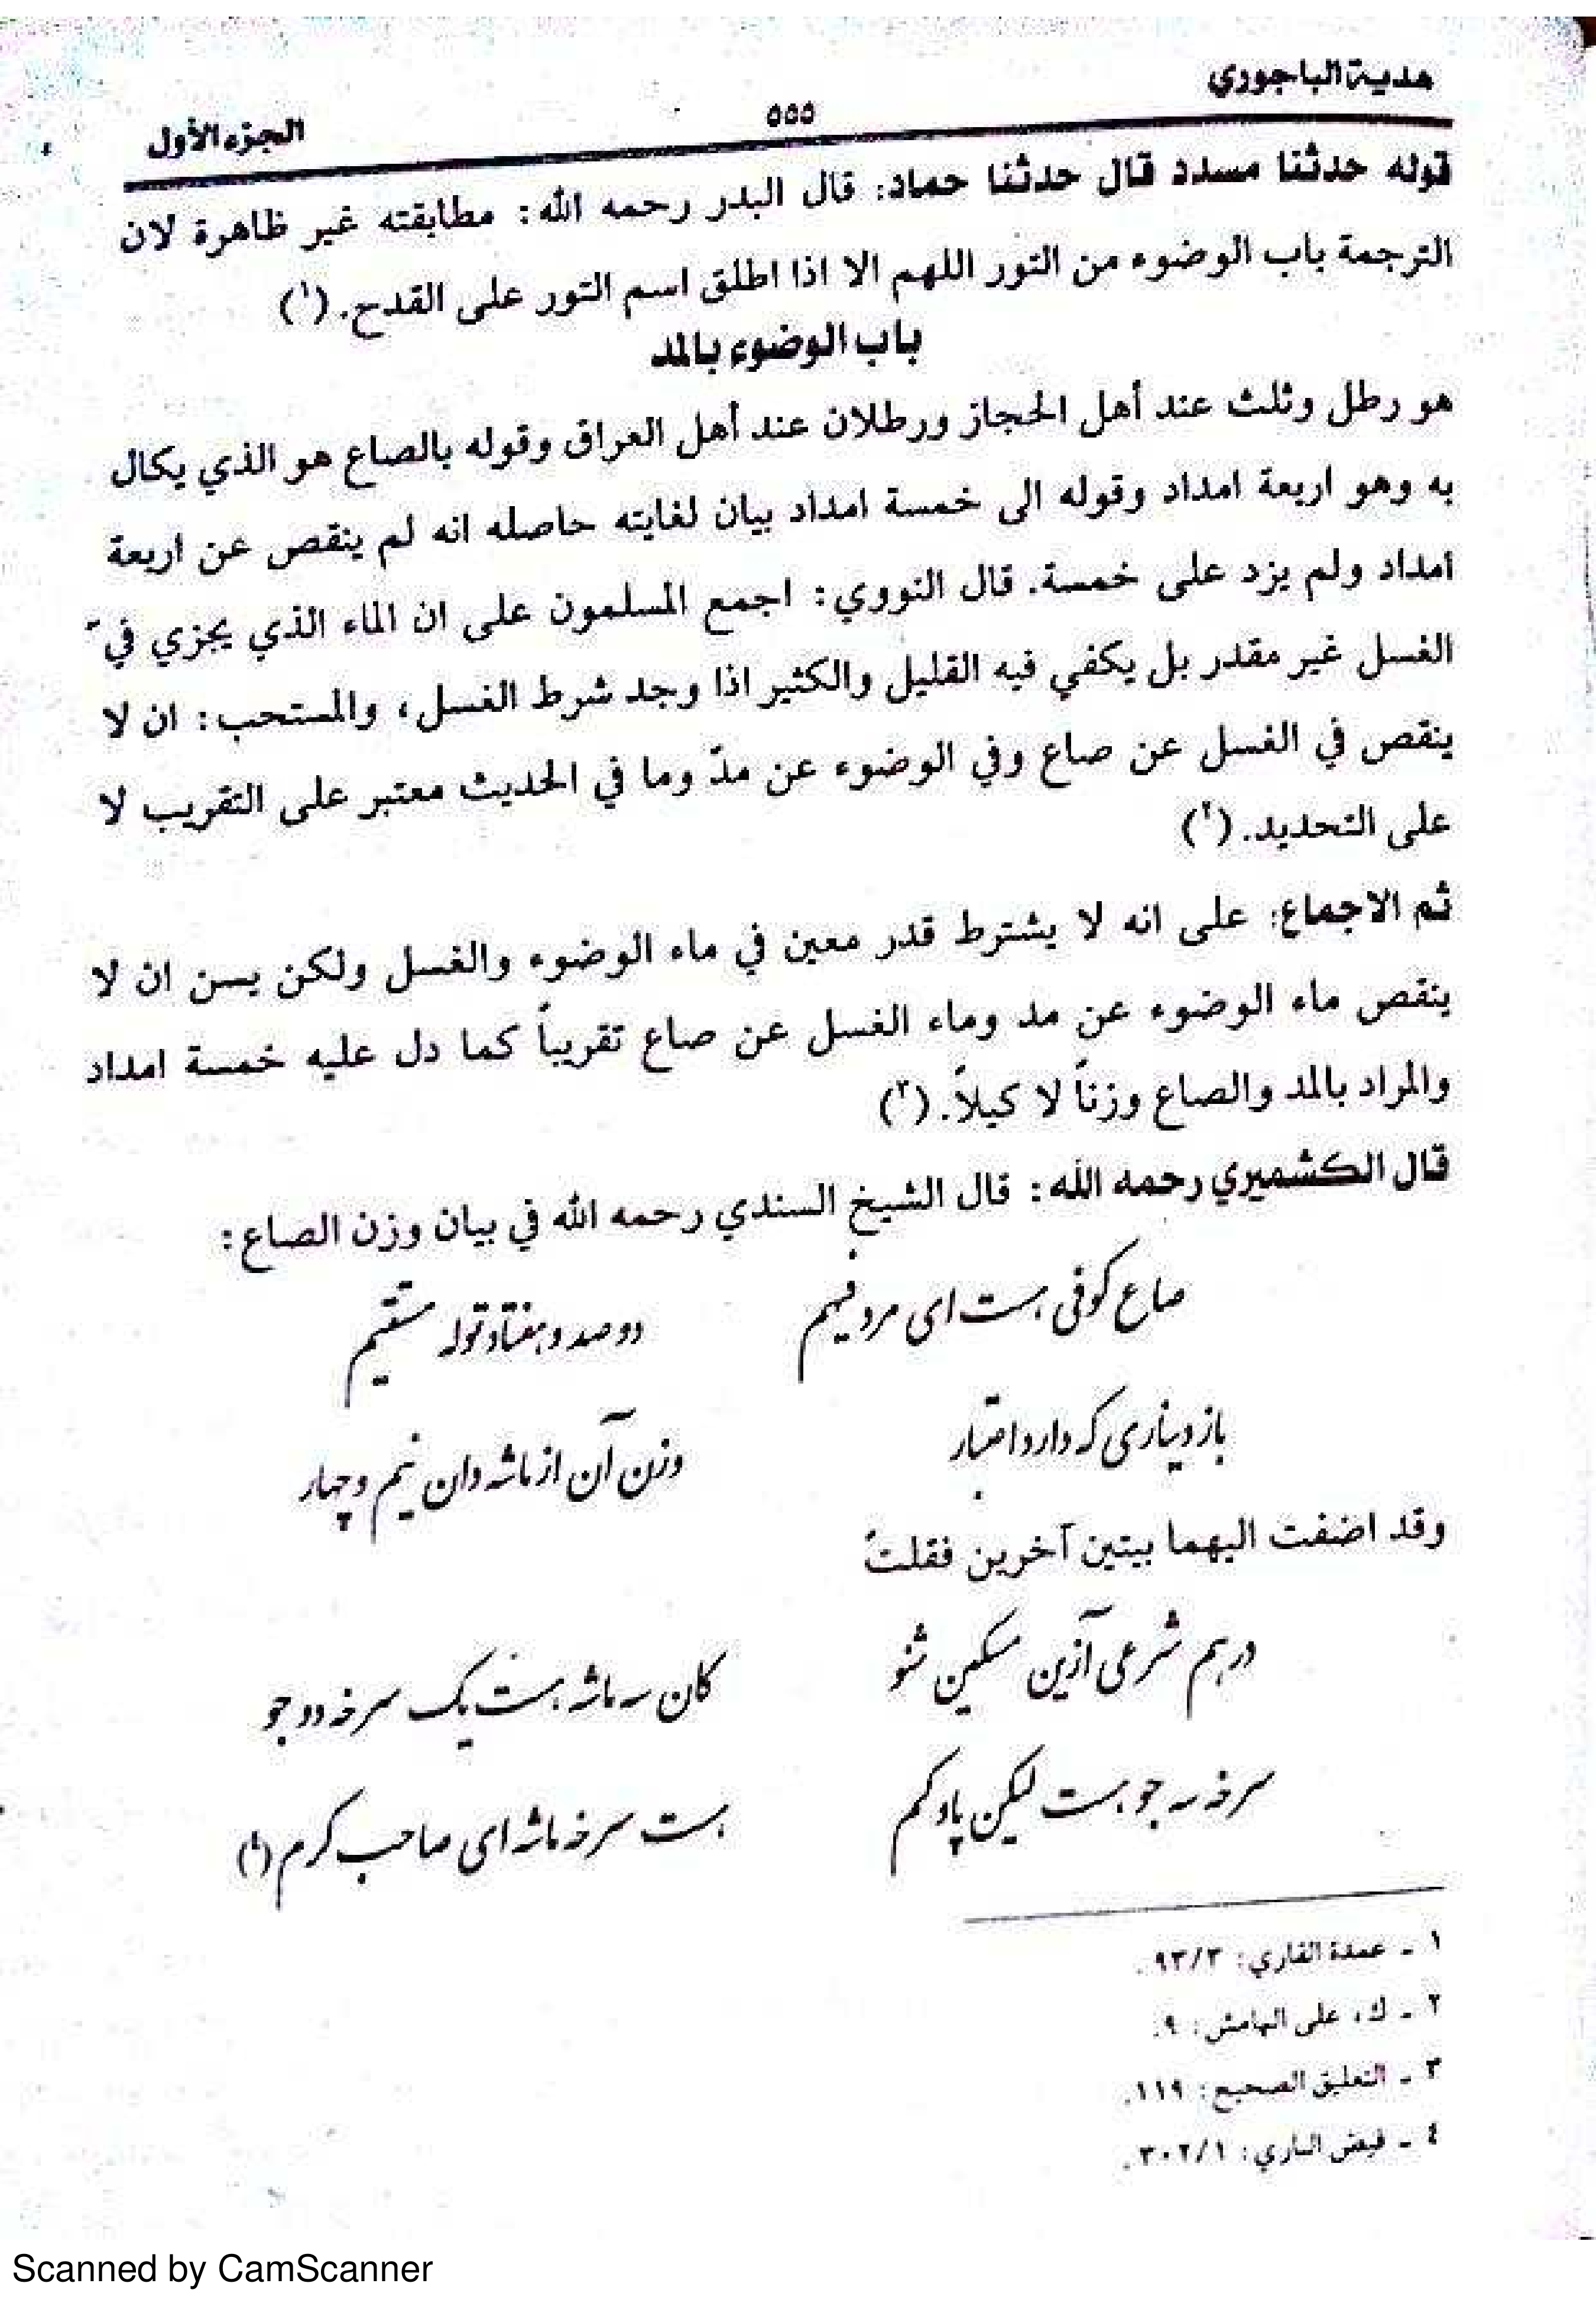 هدية الباجوري
٥٥٥
الجزء الأول
قوله حدثنا مسدد قال حدثنا حماد: قال البدر رحمه الله: مطابقته غير ظاهرة لان
الترجمة باب الوضوء من التور اللهم الا اذا اطلق اسم التور على القدح. (١)
باب الوضوء بالمد
هو رطل وثلث عند أهل الحجاز ورطلان عند أهل العراق وقوله بالصاع هو الذي يكال
به وهو اربعة امداد وقوله الى خمسة امداد بيان لغايته حاصله انه لم ينقص عن اربعة
امداد ولم يزد على خمسة. قال النووي: اجمع المسلمون على ان الماء الذي يجزي في
الغسل غير مقدر بل يكفي فيه القليل والكثير اذا وجد شرط الغسل، والمستحب: ان لا
ينقص في الغسل عن صاع وفي الوضوء عن مدّ وما في الحديث معتبر على التقريب لا
على التحديد. (٢)
ثم الاجماع: على انه لا يشترط قدر معين في ماء الوضوء والغسل ولكن يسن ان لا
ينقص ماء الوضوء عن مد وماء الغسل عن صاع تقريباً كما دل عليه خمسة امداد
والمراد بالمد والصاع وزناً لا كيلاً. (٣)
قال الكشميري رحمه الله: قال الشيخ السندي رحمه الله في بيان وزن الصاع:
صاع کوفی هست ای مرد فهیم دو صد و هفتاد توله مستقیم
باز دیناری که دارد اعتبار وزن آن از ماشه دان نیم و چهار
وقد اضفت اليهما بيتين آخرين فقلتُ
درهم شرعی آزین مسکین شنو کان سه ماشه هست یک سرخه دو جو
سرخه سه جو هست لیکن پاو کم هست سرخه ماشه ای صاحب کرم (٤)
١ ـ عمدة القاري: ٩٣/٣.
٢ ـ ك، على الهامش: ٩.
٣ ـ التعليق الصحيح: ١١٩.
٤ ـ فيض الباري: ٣٠٢/١.
Scanned by CamScanner